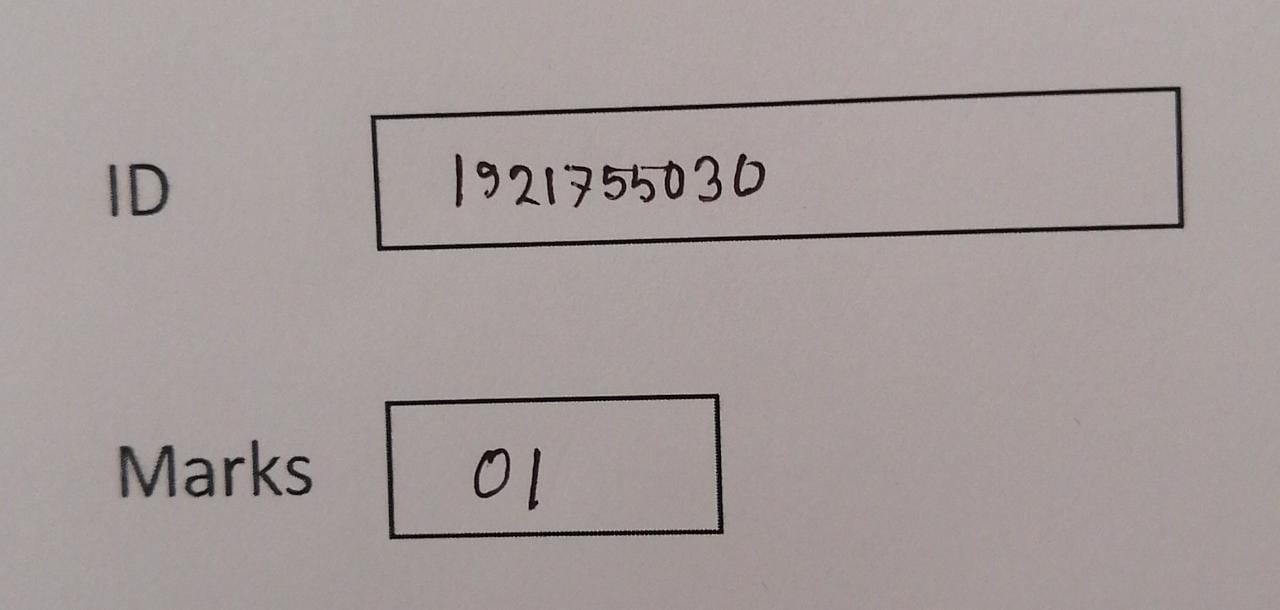 ID 1921755030
Marks 01